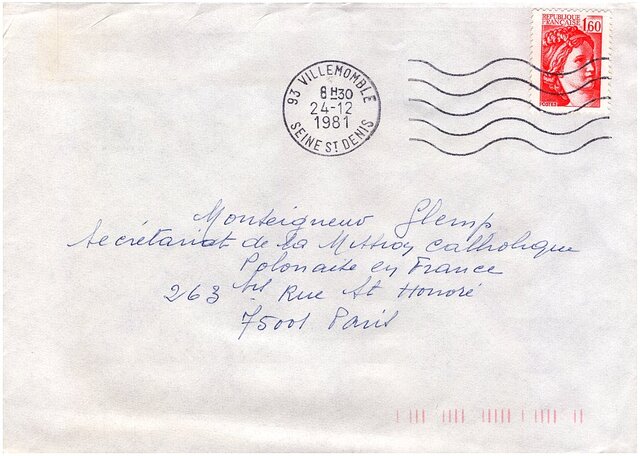 REPUBLIQUE
FRANÇAISE 1,60
93 VILLEMOMBLE
8H30
24-12
1981
SEINE ST DENIS
Monseigneur Glemp
Secrétariat de la Mission catholique
Polonaise en France
263 bis Rue St Honoré
75001 Paris